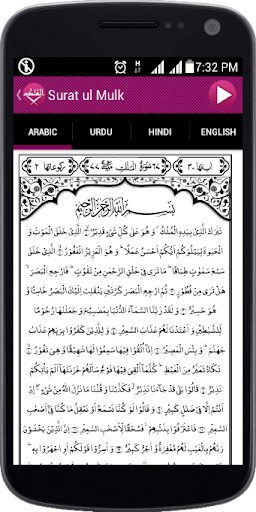 7:32 PM
Surat ul Mulk
ARABIC URDU HINDI ENGLISH
بِسْمِ اللّٰهِ الرَّحْمٰنِ الرَّحِیْمِ
تَبٰرَكَ الَّذِیْ بِیَدِهِ الْمُلْكُ وَ هُوَ عَلٰی كُلِّ شَیْءٍ قَدِیْرُ الَّذِیْ خَلَقَ الْمَوْتَ وَ
الْحَیٰوةَ لِیَبْلُوَكُمْ اَیُّكُمْ اَحْسَنُ عَمَلًا وَ هُوَ الْعَزِیْزُ الْغَفُوْرُ الَّذِیْ خَلَقَ
سَبْعَ سَمٰوٰتٍ طِبَاقًا مَا تَرٰی فِیْ خَلْقِ الرَّحْمٰنِ مِنْ تَفٰوُتٍ فَارْجِعِ الْبَصَرَ هَلْ
تَرٰی مِنْ فُطُوْرٍ ثُمَّ ارْجِعِ الْبَصَرَ كَرَّتَیْنِ یَنْقَلِبْ اِلَیْكَ الْبَصَرُ خَاسِئًا وَّ
هُوَ حَسِیْرٌ وَ لَقَدْ زَیَّنَّا السَّمَآءَ الدُّنْیَا بِمَصَابِیْحَ وَ جَعَلْنٰهَا رُجُوْمًا
لِّلشَّیٰطِیْنِ وَ اَعْتَدْنَا لَهُمْ عَذَابَ السَّعِیْرِ وَ لِلَّذِیْنَ كَفَرُوْا بِرَبِّهِمْ عَذَابُ
جَهَنَّمَ وَ بِئْسَ الْمَصِیْرُ اِذَاۤ اُلْقُوْا فِیْهَا سَمِعُوْا لَهَا شَهِیْقًا وَّ هِیَ تَفُوْرُ
تَكَادُ تَمَیَّزُ مِنَ الْغَیْظِ كُلَّمَاۤ اُلْقِیَ فِیْهَا فَوْجٌ سَاَلَهُمْ خَزَنَتُهَاۤ اَلَمْ یَاْتِكُمْ
نَذِیْرٌ قَالُوْا بَلٰی قَدْ جَآءَنَا نَذِیْرٌ فَكَذَّبْنَا وَ قُلْنَا مَا نَزَّلَ اللّٰهُ مِنْ شَیْءٍ اِنْ
اَنْتُمْ اِلَّا فِیْ ضَلٰلٍ كَبِیْرٍ وَ قَالُوْا لَوْ كُنَّا نَسْمَعُ اَوْ نَعْقِلُ مَا كُنَّا فِیْۤ اَصْحٰبِ
السَّعِیْرِ فَاعْتَرَفُوْا بِذَنْۢبِهِمْ فَسُحْقًا لِّاَصْحٰبِ السَّعِیْرِ اِنَّ الَّذِیْنَ یَخْشَوْنَ
رَبَّهُمْ بِالْغَیْبِ لَهُمْ مَّغْفِرَةٌ وَّ اَجْرٌ كَبِیْرٌ وَ اَسِرُّوْا قَوْلَكُمْ اَوِ اجْهَرُوْا بِهٖ